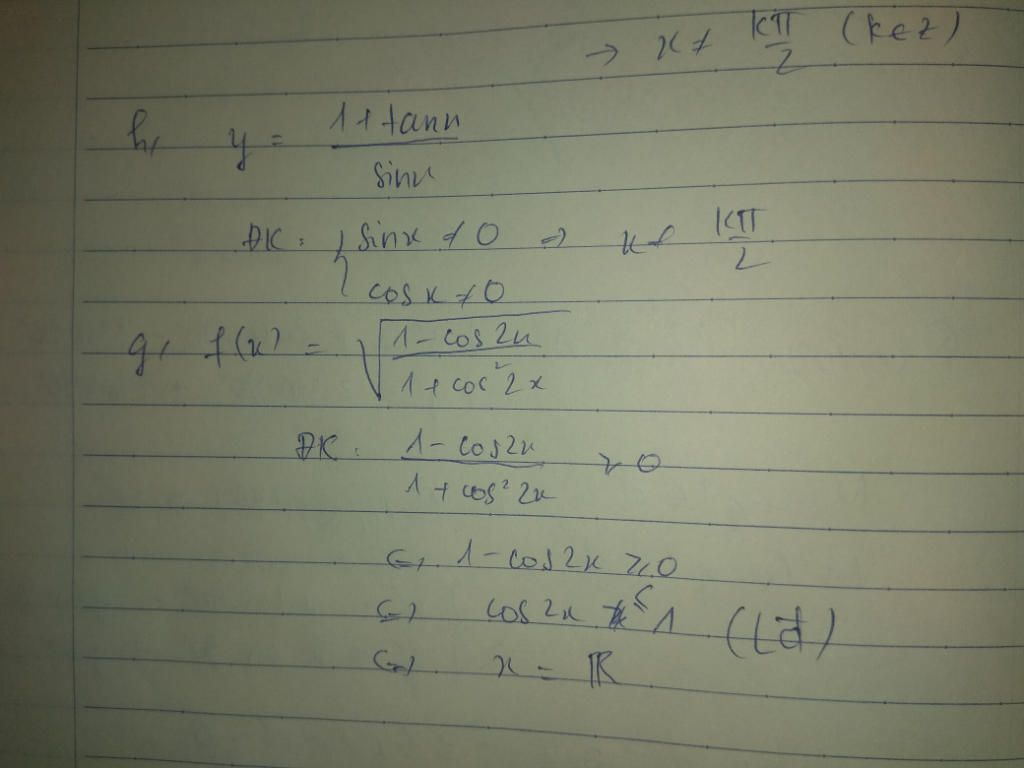 → x ≠ kπ/2 (k∈Z)
h, y = (1 + tanx)/sinx
ĐK: { sinx ≠ 0 ⇒ x ≠ kπ/2
cosx ≠ 0
g, f(x) = √((1 - cos2x)/(1 + cos²2x))
ĐK: (1 - cos2x)/(1 + cos²2x) ≥ 0
⇔ 1 - cos2x ≥ 0
⇔ cos2x ≤ 1 (Lđ)
⇔ x = ℝ